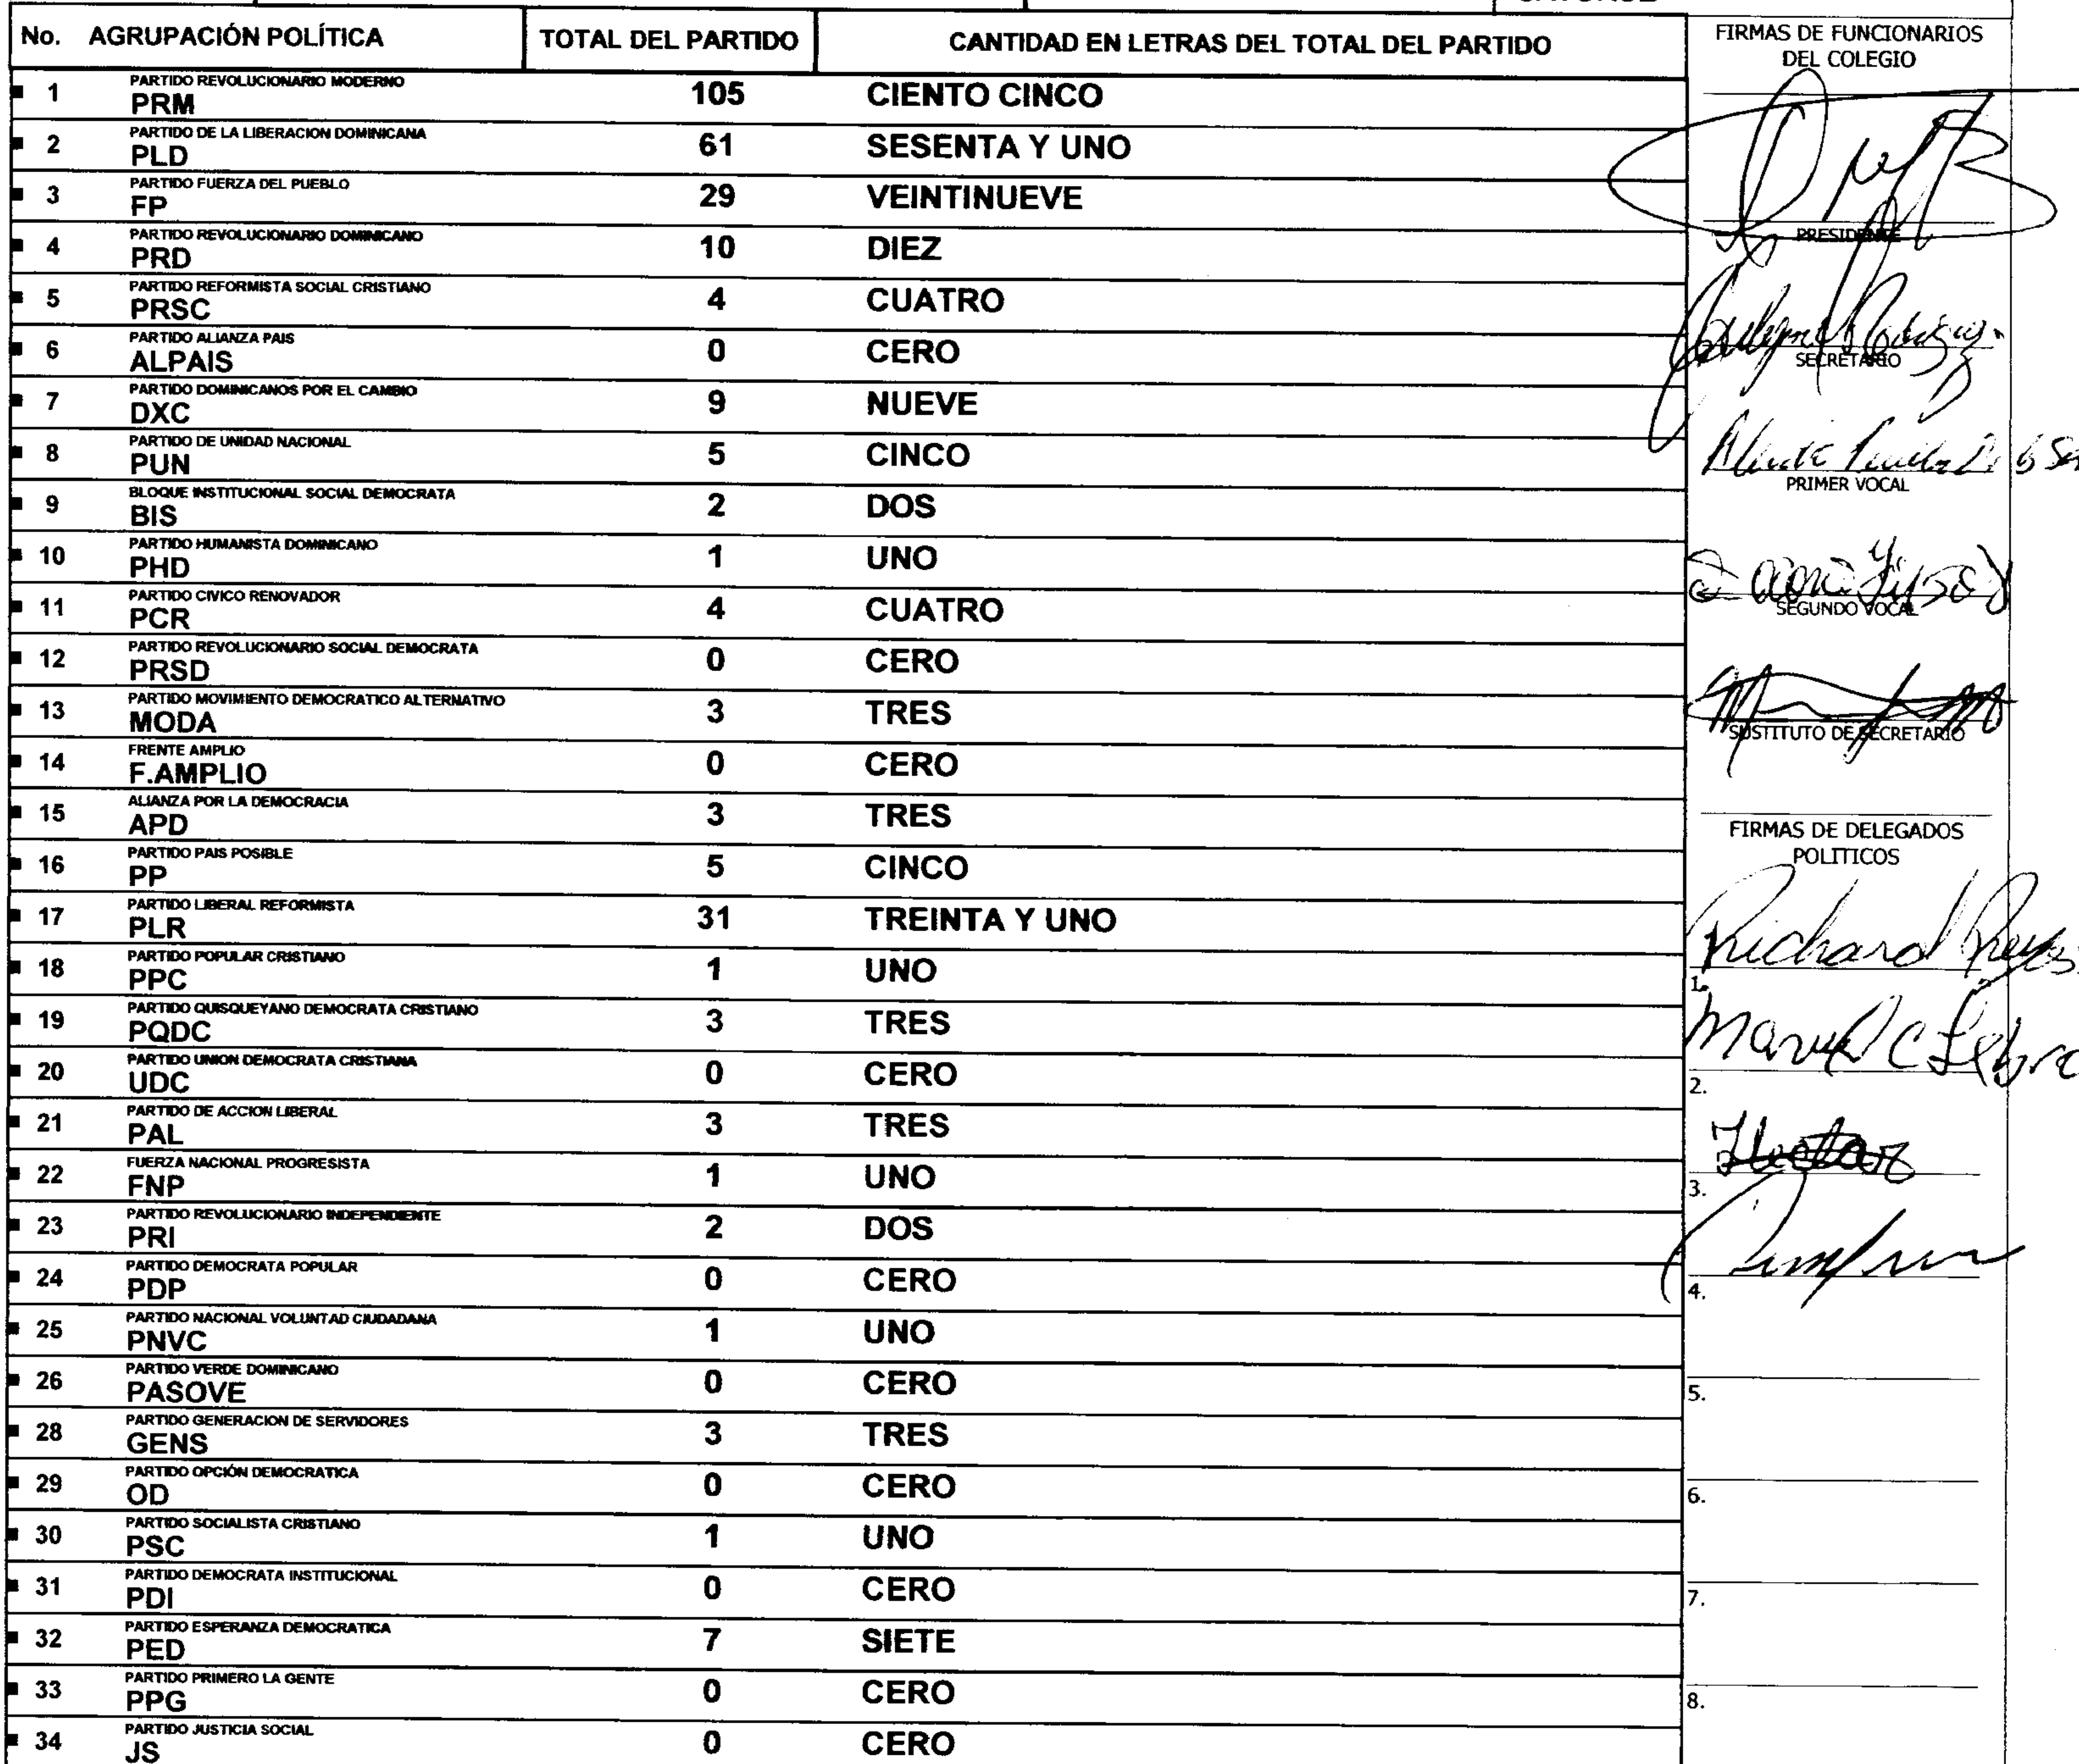 No. AGRUPACIÓN POLÍTICA TOTAL DEL PARTIDO CANTIDAD EN LETRAS DEL TOTAL DEL PARTIDO
1 PARTIDO REVOLUCIONARIO MODERNO
PRM 105 CIENTO CINCO
2 PARTIDO DE LA LIBERACION DOMINICANA
PLD 61 SESENTA Y UNO
3 PARTIDO FUERZA DEL PUEBLO
FP 29 VEINTINUEVE
4 PARTIDO REVOLUCIONARIO DOMINICANO
PRD 10 DIEZ
5 PARTIDO REFORMISTA SOCIAL CRISTIANO
PRSC 4 CUATRO
6 PARTIDO ALIANZA PAIS
ALPAIS 0 CERO
7 PARTIDO DOMINICANOS POR EL CAMBIO
DXC 9 NUEVE
8 PARTIDO DE UNIDAD NACIONAL
PUN 5 CINCO
9 BLOQUE INSTITUCIONAL SOCIAL DEMOCRATA
BIS 2 DOS
10 PARTIDO HUMANISTA DOMINICANO
PHD 1 UNO
11 PARTIDO CIVICO RENOVADOR
PCR 4 CUATRO
12 PARTIDO REVOLUCIONARIO SOCIAL DEMOCRATA
PRSD 0 CERO
13 PARTIDO MOVIMIENTO DEMOCRATICO ALTERNATIVO
MODA 3 TRES
14 FRENTE AMPLIO
F.AMPLIO 0 CERO
15 ALIANZA POR LA DEMOCRACIA
APD 3 TRES
16 PARTIDO PAIS POSIBLE
PP 5 CINCO
17 PARTIDO LIBERAL REFORMISTA
PLR 31 TREINTA Y UNO
18 PARTIDO POPULAR CRISTIANO
PPC 1 UNO
19 PARTIDO QUISQUEYANO DEMOCRATA CRISTIANO
PQDC 3 TRES
20 PARTIDO UNION DEMOCRATA CRISTIANA
UDC 0 CERO
21 PARTIDO DE ACCION LIBERAL
PAL 3 TRES
22 FUERZA NACIONAL PROGRESISTA
FNP 1 UNO
23 PARTIDO REVOLUCIONARIO INDEPENDIENTE
PRI 2 DOS
24 PARTIDO DEMOCRATA POPULAR
PDP 0 CERO
25 PARTIDO NACIONAL VOLUNTAD CIUDADANA
PNVC 1 UNO
26 PARTIDO VERDE DOMINICANO
PASOVE 0 CERO
28 PARTIDO GENERACION DE SERVIDORES
GENS 3 TRES
29 PARTIDO OPCIÓN DEMOCRATICA
OD 0 CERO
30 PARTIDO SOCIALISTA CRISTIANO
PSC 1 UNO
31 PARTIDO DEMOCRATA INSTITUCIONAL
PDI 0 CERO
32 PARTIDO ESPERANZA DEMOCRATICA
PED 7 SIETE
33 PARTIDO PRIMERO LA GENTE
PPG 0 CERO
34 PARTIDO JUSTICIA SOCIAL
JS 0 CERO
FIRMAS DE FUNCIONARIOS
DEL COLEGIO
PRESIDENTE
SECRETARIO
PRIMER VOCAL
SEGUNDO VOCAL
SUSTITUTO DE SECRETARIO
FIRMAS DE DELEGADOS
POLITICOS
Richard Reyes
1.
Manuel C
2.
3.
4.
5.
6.
7.
8.